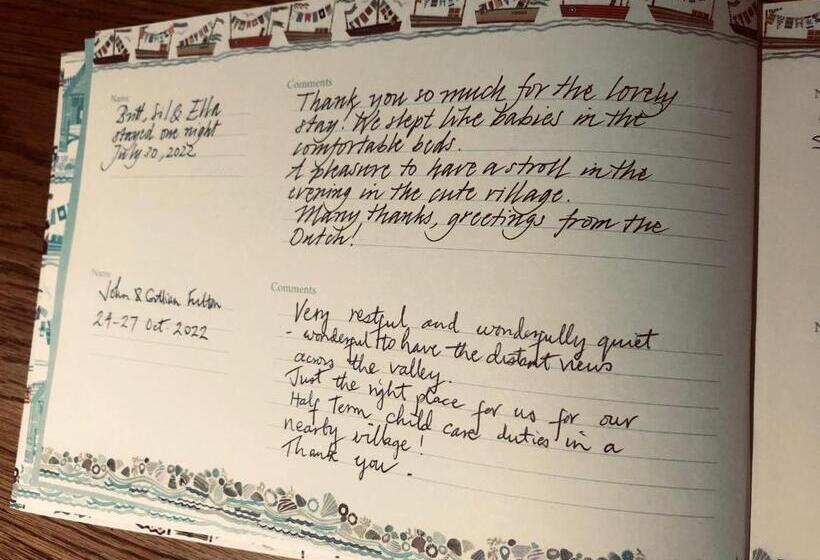 Name
Britt, Sil & Ella
stayed one night
July 30, 2022
Comments
Thank you so much for the lovely
stay! We slept like babies in the
comfortable beds.
A pleasure to have a stroll in the
evening in the cute village.
Many thanks, greetings from the
Dutch!
Name
John & Gillian Fulton
24-27 Oct. 2022
Comments
Very restful and wonderfully quiet
- wonderful to have the distant views
across the valley.
Just the right place for us for our
Half Term child care duties in a
nearby village!
Thank you.